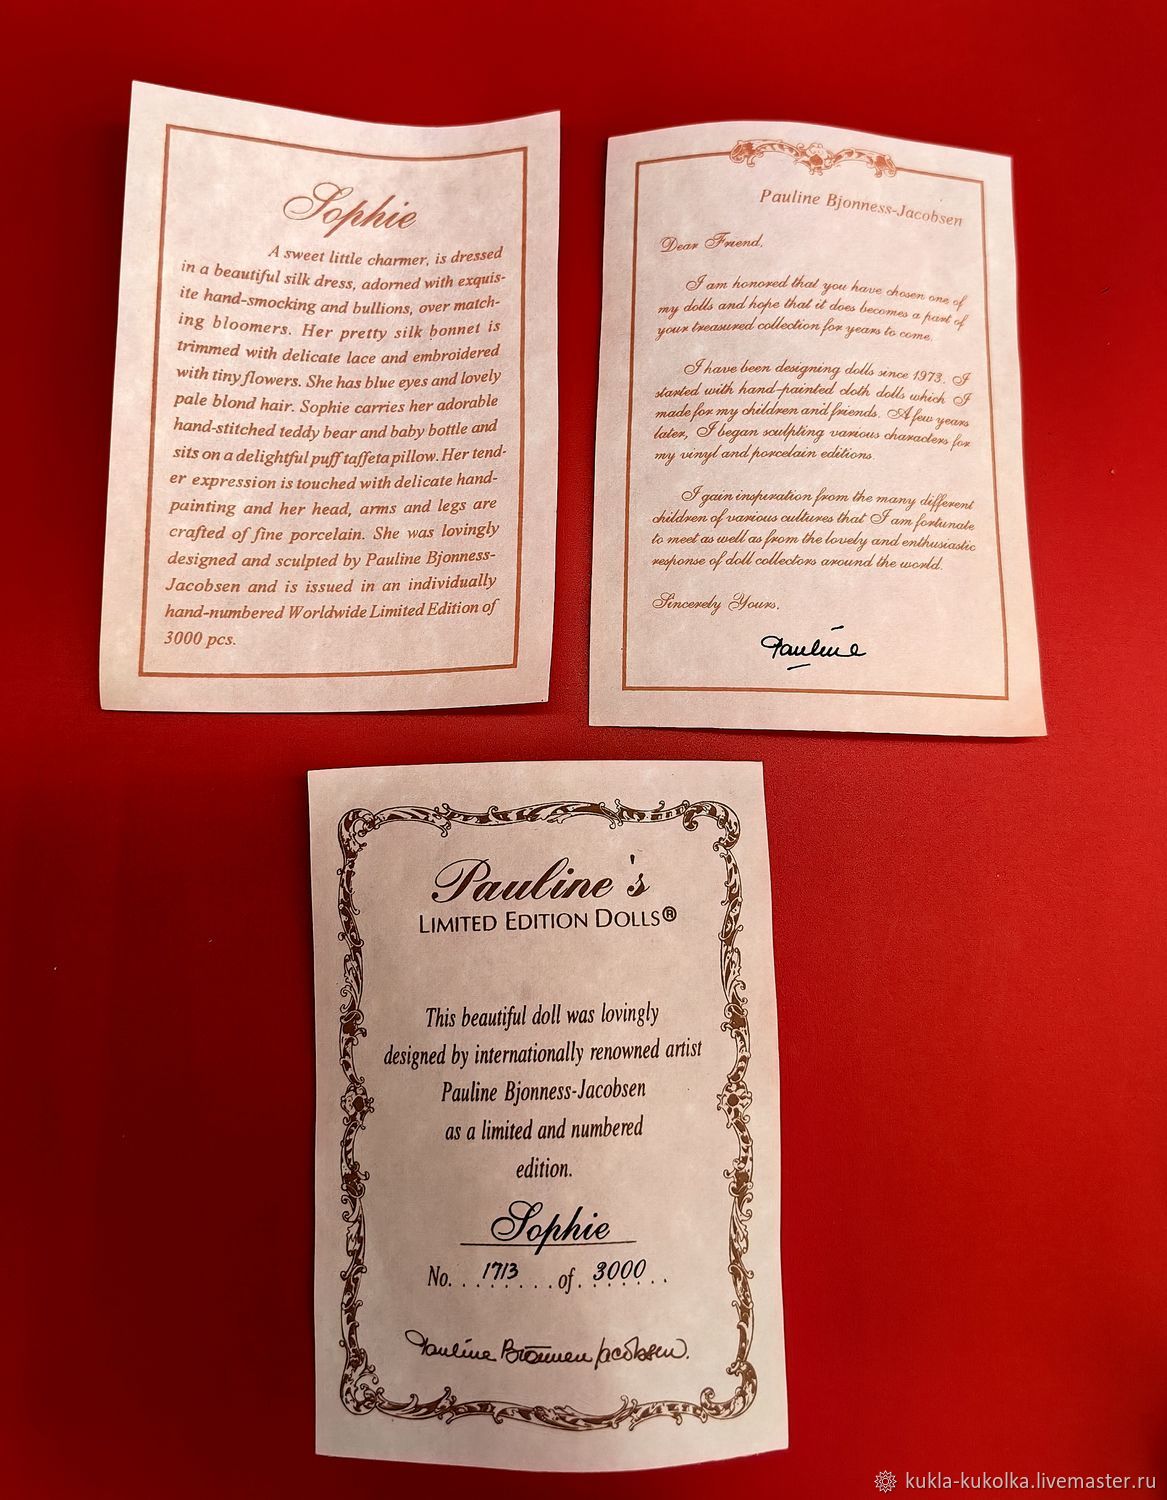 Sophie
A sweet little charmer, is dressed
in a beautiful silk dress, adorned with exquis-
ite hand-smocking and bullions, over match-
ing bloomers. Her pretty silk bonnet is
trimmed with delicate lace and embroidered
with tiny flowers. She has blue eyes and lovely
pale blond hair. Sophie carries her adorable
hand-stitched teddy bear and baby bottle and
sits on a delightful puff taffeta pillow. Her tend-
er expression is touched with delicate hand-
painting and her head, arms and legs are
crafted of fine porcelain. She was lovingly
designed and sculpted by Pauline Bjonness-
Jacobsen and is issued in an individually
hand-numbered Worldwide Limited Edition of
3000 pcs.
Pauline Bjonness-Jacobsen
Dear Friend,
I am honored that you have chosen one of
my dolls and hope that it does becomes a part of
your treasured collection for years to come.
I have been designing dolls since 1973. I
started with hand-painted cloth dolls which I
made for my children and friends. A few years
later, I began sculpting various characters for
my vinyl and porcelain editions.
I gain inspiration from the many different
children of various cultures that I am fortunate
to meet as well as from the lovely and enthusiastic
response of doll collectors around the world.
Sincerely Yours,
Pauline
Pauline's
LIMITED EDITION DOLLS®
This beautiful doll was lovingly
designed by internationally renowned artist
Pauline Bjonness-Jacobsen
as a limited and numbered
edition.
Sophie
No. 1713 of 3000
Pauline Bjonness Jacobsen.
kukla-kukolka.livemaster.ru